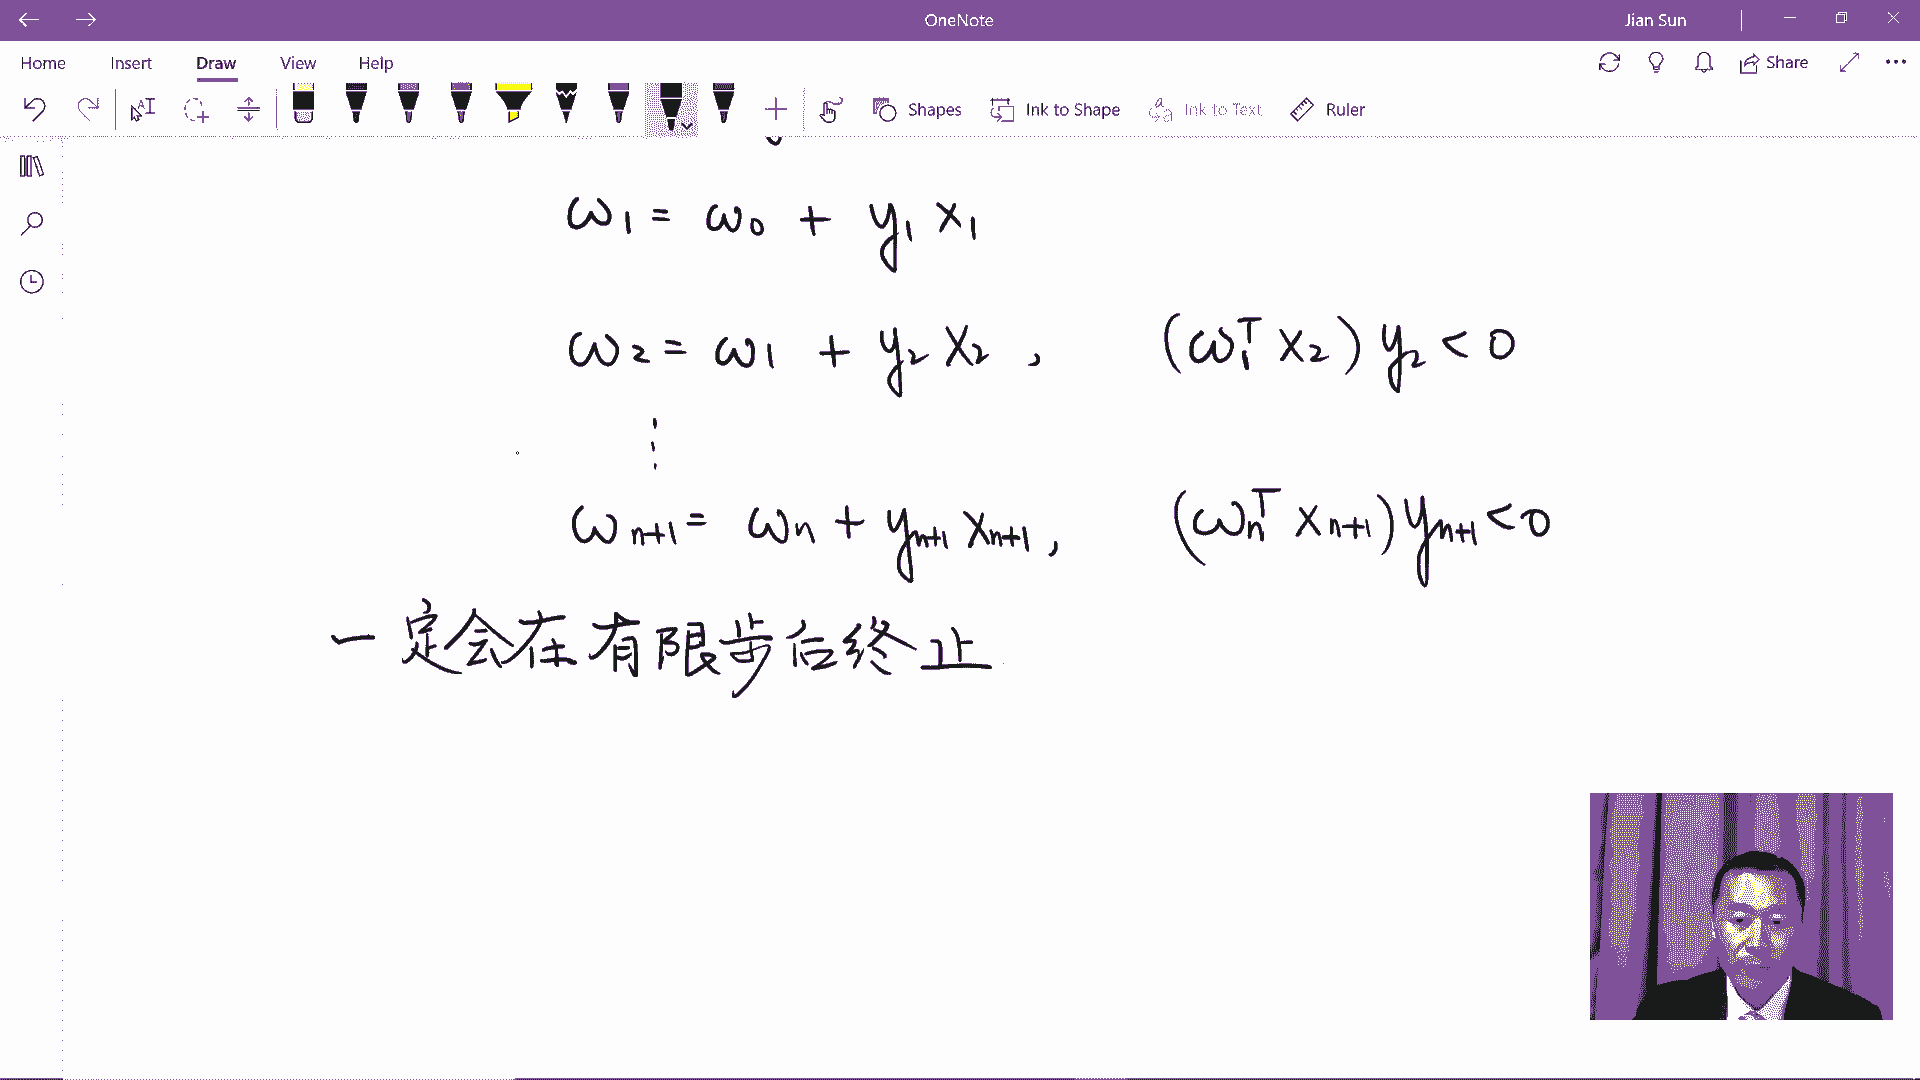 OneNote
Jian Sun
Home Insert Draw View Help
Share
Shapes Ink to Shape Ink to Text Ruler
ω₁ = ω₀ + y₁ x₁
ω₂ = ω₁ + y₂ x₂ , (ω₁ᵀ x₂) y₂ < 0
⋮
ωₙ₊₁ = ωₙ + yₙ₊₁ xₙ₊₁ , (ωₙᵀ xₙ₊₁) yₙ₊₁ < 0
一定会在有限步后终止